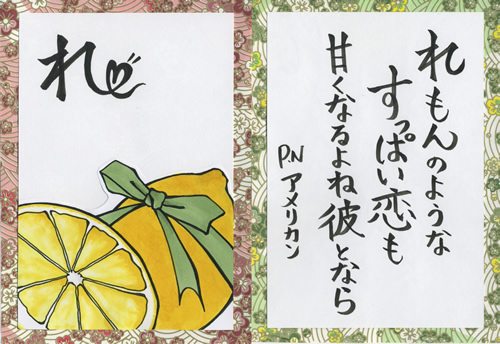 れ
れもんのような
すっぱい恋も
甘くなるよね彼となら
P.N アメリカン